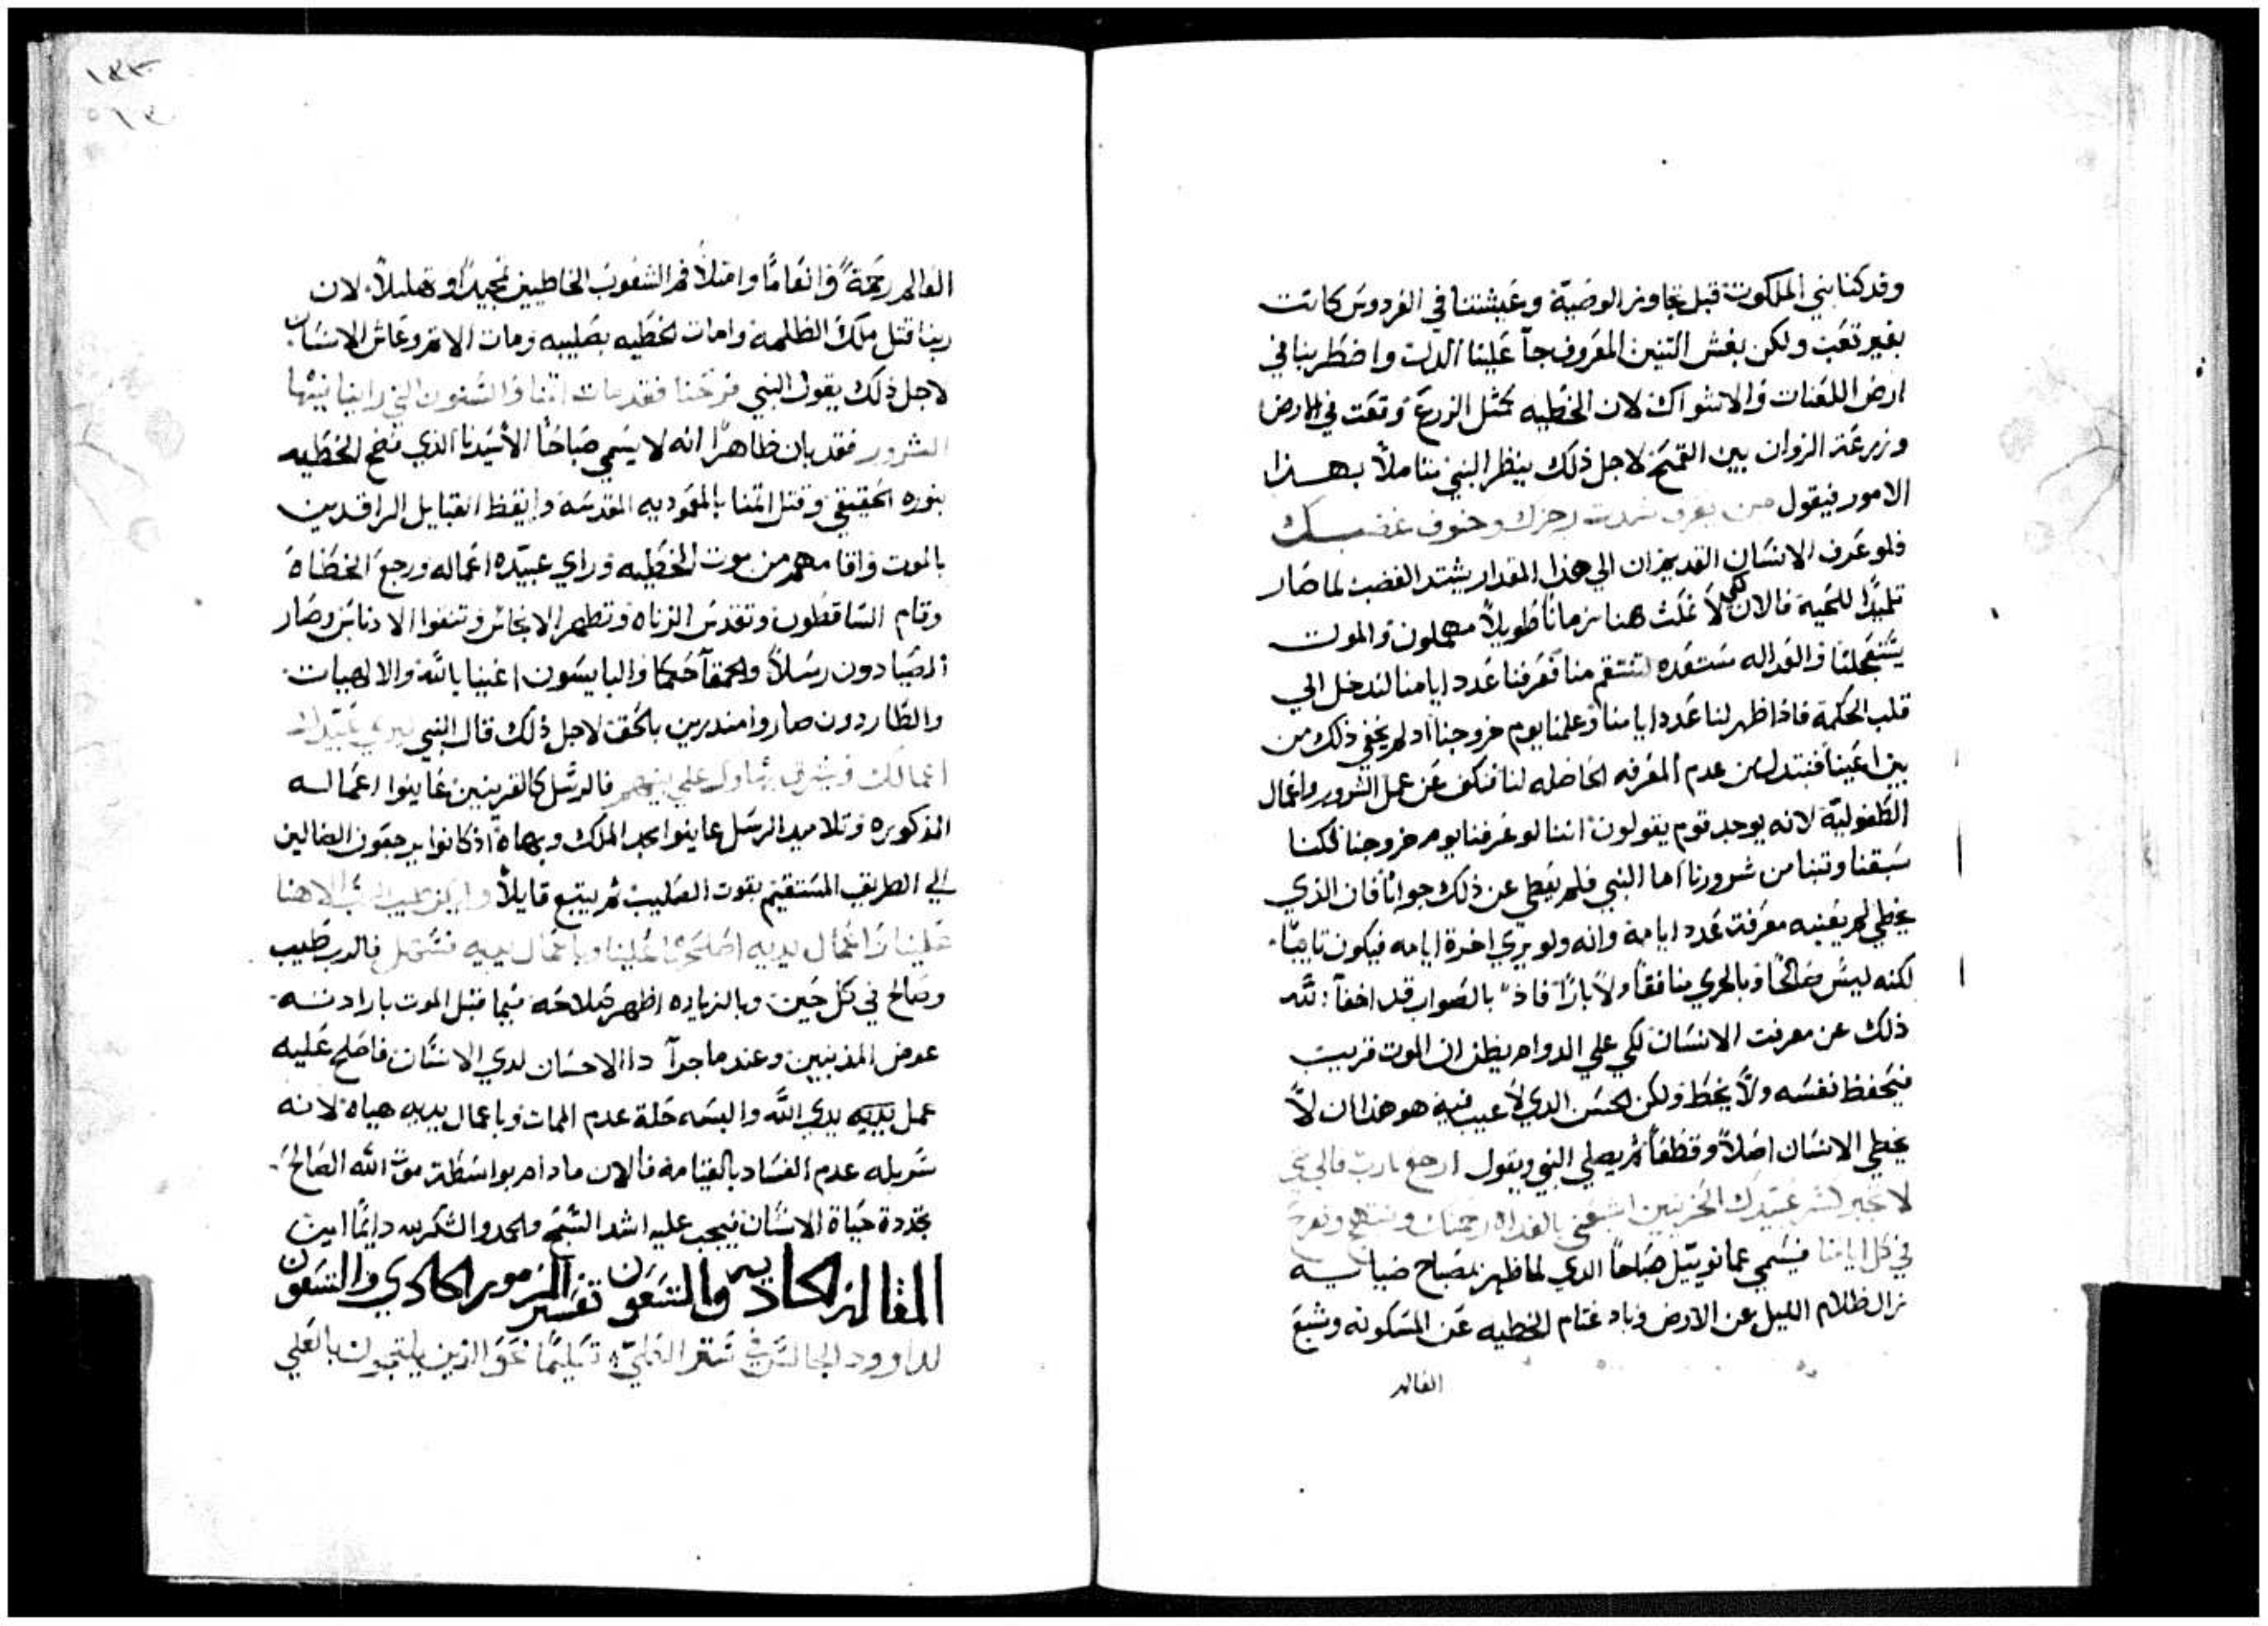 وقد كنا بني الملكوت قبل تجاوز الوصية وعيشتنا في الفردوس كانت
بغير تعب ولكن بغش التنين المعروف جآ علينا الدلت واضطربنا في
ارض اللعنات والاشواك لان الخطيه كمثل الزرع وقعت في الارض
وزرعة الزوان بين القمح لاجل ذلك ينظر النبي متاملاً بهذا
الامور فيقول من يعرف شدت رجزك وخوف غضبك
فلو عرف الانسان القديم ان الي هذا المقدار يشتد الغضب لما صار
تلميدًا للحية فالان لكي لا نمكث هنا زمانًا طويلاً مهملون والموت
يستعجلنا والعداله مستعده لتنتقم منا فعرفنا عدد ايامنا لندخل الي
قلب الحكمة فاذا ظهر لنا عدد ايامنا وعلمنا يوم خروجنا اد لم يخفي ذلك من
بين اعيننا فنبتدل من عدم المعرفه الحاصله لنا فنكف عن عمل الشرور واعمال
الطفولية لانه يوجد قوم يقولون اننا لو عرفنا يوم خروجنا لكنا
سبقنا وتبنا من شرورنا اما النبي فلم يعطي عن ذلك جوابًا فان الذي
يخطي لم يعنيه معرفت عدد ايامه وانه ولو يري اخرة ايامه فيكون تايبًا
لكنه ليس صالحًا وبالحري منافقًا ولا بارًا فاذً بالصواب قد اخفآ الله
ذلك عن معرفت الانسان لكي علي الدوام يظن ان الموت قريب
فيحفظ نفسه ولا يخطا ولكن الحسن الدي لا عيب فيه هو هذا ان لا
يخطي الانسان اصلاً وقطعًا ثم يصلي النبي ويقول ارجع يارب فالي متي
في كل ايامنا فيسمي عمانوييل صباحًا الدي لما ظهر بمصباح ضيايه
زال ظلام الليل عن الارض وباد غتام الخطيه عن المسكونه وشبع
العالم
١٨٣
٥٦٣
العالم رحمةً وانعامًا وامتلا فم الشعوب الخاطيين تمجيدًا وتهليلاً لان
ربنا قتل ملك الظلمه وامات الخطيه بصليبه ومات الاثم وعاش الانسان
لاجل ذلك يقول النبي فرحنا فقد مات اثمنا والسنون التي راينا فيها
الشرور فقد بان ظاهرًا انه لا يسمي صباحًا الا سيدنا الذي فضح الخطيه
بنوره الحقيقي وقتل اثمنا بالمعموديه المقدسة وايقظ القبايل الراقدين
بالموت واقامهم من موت الخطيه وراي عبيده اعماله ورجع الخطاة
وقام الساقطون وتقدس الزناه وتطهر الانجاس وتنقوا الادناس وصار
الصيادون رسلاً والحمقآ حكما والبايسون اغنيا بالله والالهيات
والطاردون صاروا منذرين بالحق لاجل ذلك قال النبي ليري عبيدك
اعمالك فالرسل كالقريبين عاينوا اعماله
المذكوره وتلاميد الرسل عاينوا مجد الملك وبهاه اذ كانوا يرجعون الضالين
الي الطريق المستقيم بقوت الصليب ثم يتبع قايلاً
علينا واعمال يديه اصلح علينا وباعمال يديه تسهل فالرب طيب
وصالح في كل حين وبالزياده اظهر صلاحه فيما قبل الموت بارادته
عوض المذنبين وعند ما جرآ دا الاحسان لدي الانسان فاصلح عليه
عمل يديه يدي الله والبسه حلة عدم الممات وباعمال يديه حياه لانه
سربله عدم الفساد بالقيامة فالان مادام بواسطة موت الله الصالح
تجددة حياة الانسان فيجب عليه اشد التسبيح والحمد والشكر به دايمًا امين
المقاله الحاديه والتسعون تفسير المزمور الحادي والتسعون
لداوود الجالس في ستر العلي تعليمًا نحو الذين يلتجون بالعلي